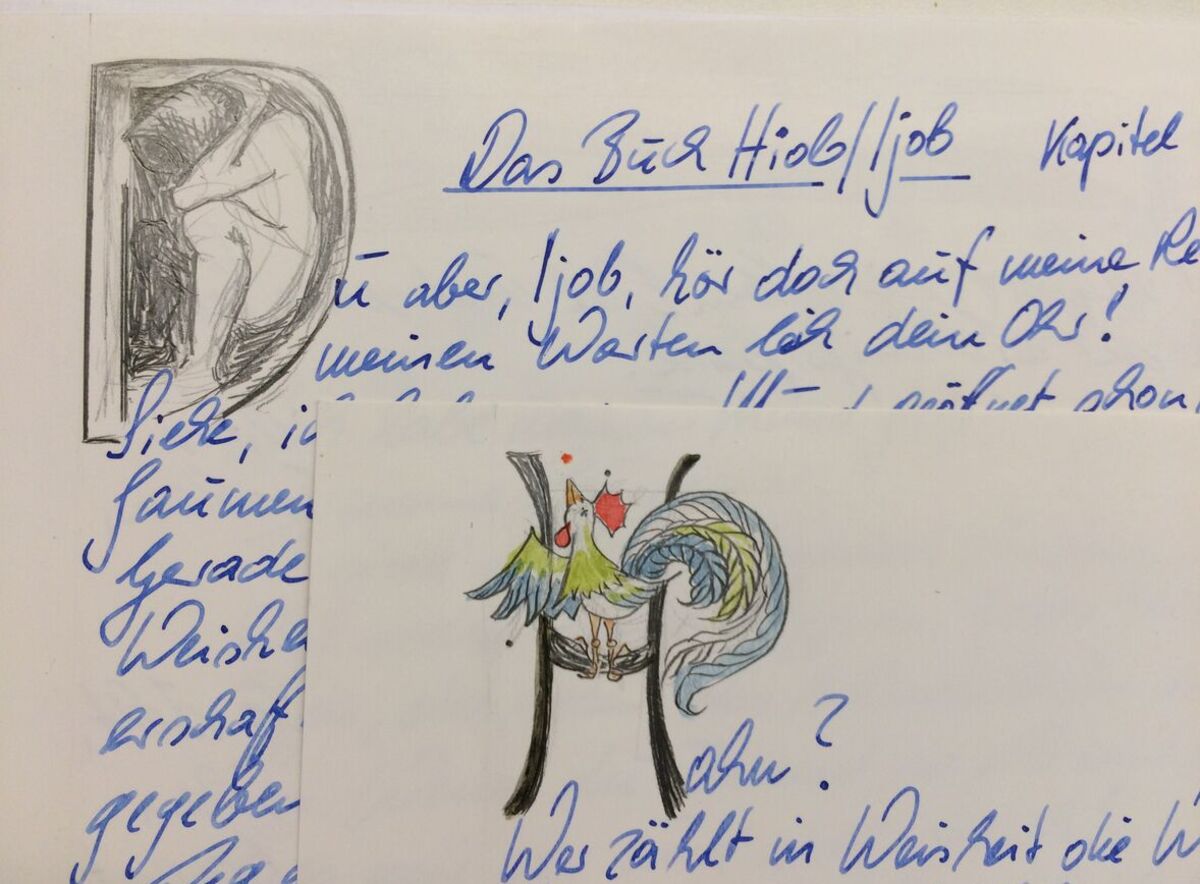 Das Buch Hiob/Ijob Kapitel
Du aber, Ijob, hör doch auf meine Re
meinen Worten leih dein Ohr!
Siehe, ic
Gaumen
Gerade
Weishe
erschaff
gegeben
Hahn?
Wer zählt in Weisheit die W